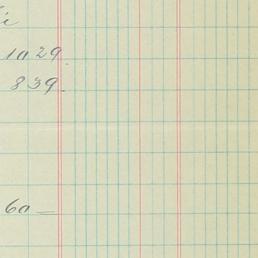 1029.
839.
60 —